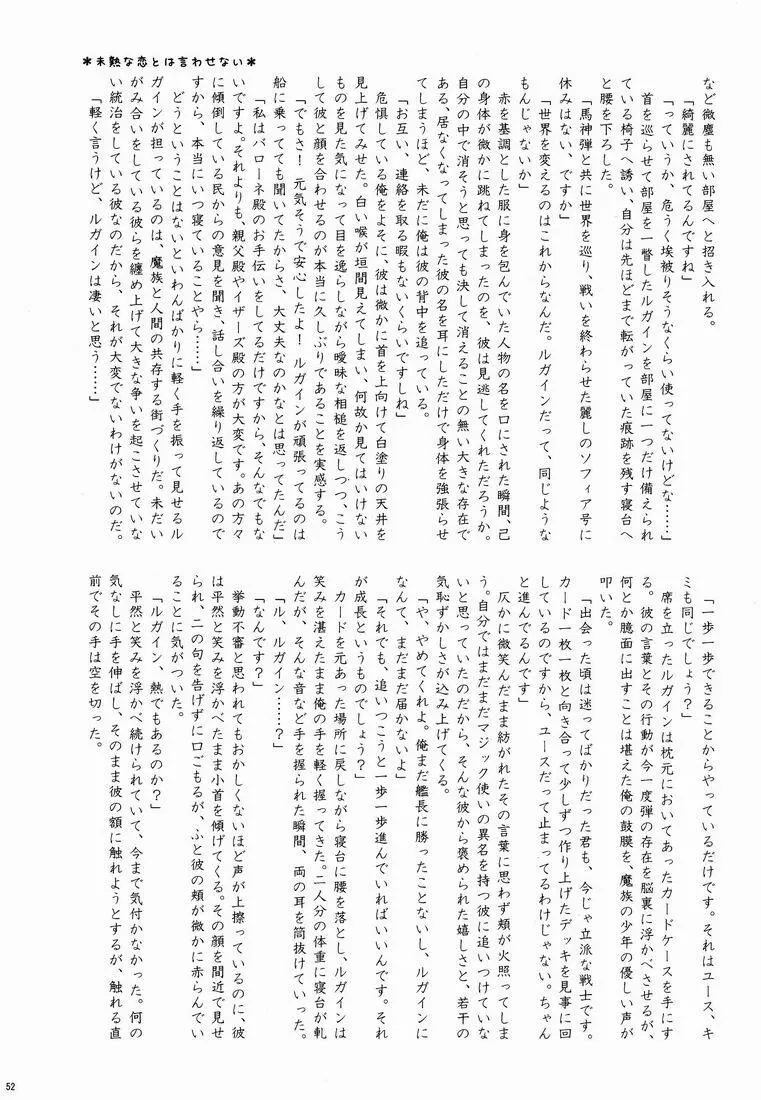 ＊未熟な恋とは言わせない＊
など微塵も無い部屋へと招き入れる。
「綺麗にされてるんですね」
「っていうか、危うく埃被りそうなくらい使ってないけどな……」
首を巡らせて部屋を一瞥したルガインを部屋に一つだけ備えられ
ている椅子へ誘い、自分は先ほどまで転がっていた痕跡を残す寝台へ
と腰を下ろした。
「馬神弾と共に世界を巡り、戦いを終わらせた麗しのソフィア号に
休みはない、ですか」
「世界を変えるのはこれからなんだ。ルガインだって、同じような
もんじゃないか」
赤を基調とした服に身を包んでいた人物の名を口にされた瞬間、己
の身体が微かに跳ねてしまったのを、彼は見逃してくれただろうか。
自分の中で消そうと思っても決して消えることの無い大きな存在で
ある、居なくなってしまった彼の名を耳にしただけで身体を強張らせ
てしまうほど、未だに俺は彼の背中を追っている。
「お互い、連絡を取る暇もないくらいですしね」
危惧している俺をよそに、彼は微かに首を上向けて白塗りの天井を
見上げてみせた。白い喉が垣間見えてしまい、何故か見てはいけない
ものを見た気になって目を逸らしながら曖昧な相槌を返しつつ、こう
して彼と顔を合わせるのが本当に久しぶりであることを実感する。
「でもさ！　元気そうで安心したよ！　ルガインが頑張ってるのは
船に乗ってても聞いてたからさ、大丈夫なのかなとは思ってたんだ」
「私はバローネ殿のお手伝いをしてるだけですから、そんなでもな
いですよ。それよりも、親父殿やイザーズ殿の方が大変です。あの方々
に傾倒している民からの意見を聞き、話し合いを繰り返しているので
すから、本当にいつ寝ていることやら……」
どうということはないといわんばかりに軽く手を振って見せるル
ガインが担っているのは、魔族と人間の共存する街づくりだ。未だい
がみ合いをしている彼らを纏め上げて大きな争いを起こさせていな
い統治をしている彼なのだから、それが大変でないわけがないのだ。
「軽く言うけど、ルガインは凄いと思う……」
「一歩一歩できることからやっているだけです。それはユース、キ
ミも同じでしょう？」
席を立ったルガインは枕元においてあったカードケースを手にす
る。彼の言葉とその行動が今一度弾の存在を脳裏に浮かべさせるが、
何とか臆面に出すことは堪えた俺の鼓膜を、魔族の少年の優しい声が
叩いた。
「出会った頃は迷ってばかりだった君も、今じゃ立派な戦士です。
カード一枚一枚と向き合って少しずつ作り上げたデッキを見事に回
しているのですから、ユースだって止まってるわけじゃない。ちゃん
と進んでるんです」
仄かに微笑んだまま紡がれたその言葉に思わず頬が火照ってしま
う。自分ではまだまだマジック使いの異名を持つ彼に追いつけていな
いと思っていたのだから、そんな彼から褒められた嬉しさと、若干の
気恥ずかしさが込み上げてくる。
「や、やめてくれよ。俺まだ艦長に勝ったことないし、ルガインに
なんて、まだまだ届かないよ」
「それでも、追いつこうと一歩一歩進んでいればいいんです。それ
が成長というものでしょう？」
カードを元あった場所に戻しながら寝台に腰を落とし、ルガインは
笑みを湛えたまま俺の手を軽く握ってきた。二人分の体重に寝台が軋
んだが、そんな音など手を握られた瞬間、両の耳を筒抜けていった。
「ル、ルガイン……？」
「なんです？」
挙動不審と思われてもおかしくないほど声が上擦っているのに、彼
は平然と笑みを浮かべたまま小首を傾げてくる。その顔を間近で見せ
られ、二の句を告げずに口ごもるが、ふと彼の頬が微かに赤らんでい
ることに気がついた。
「ルガイン、熱でもあるのか？」
平然と笑みを浮かべ続けられていて、今まで気付かなかった。何の
気なしに手を伸ばし、そのまま彼の額に触れようとするが、触れる直
前でその手は空を切った。
52